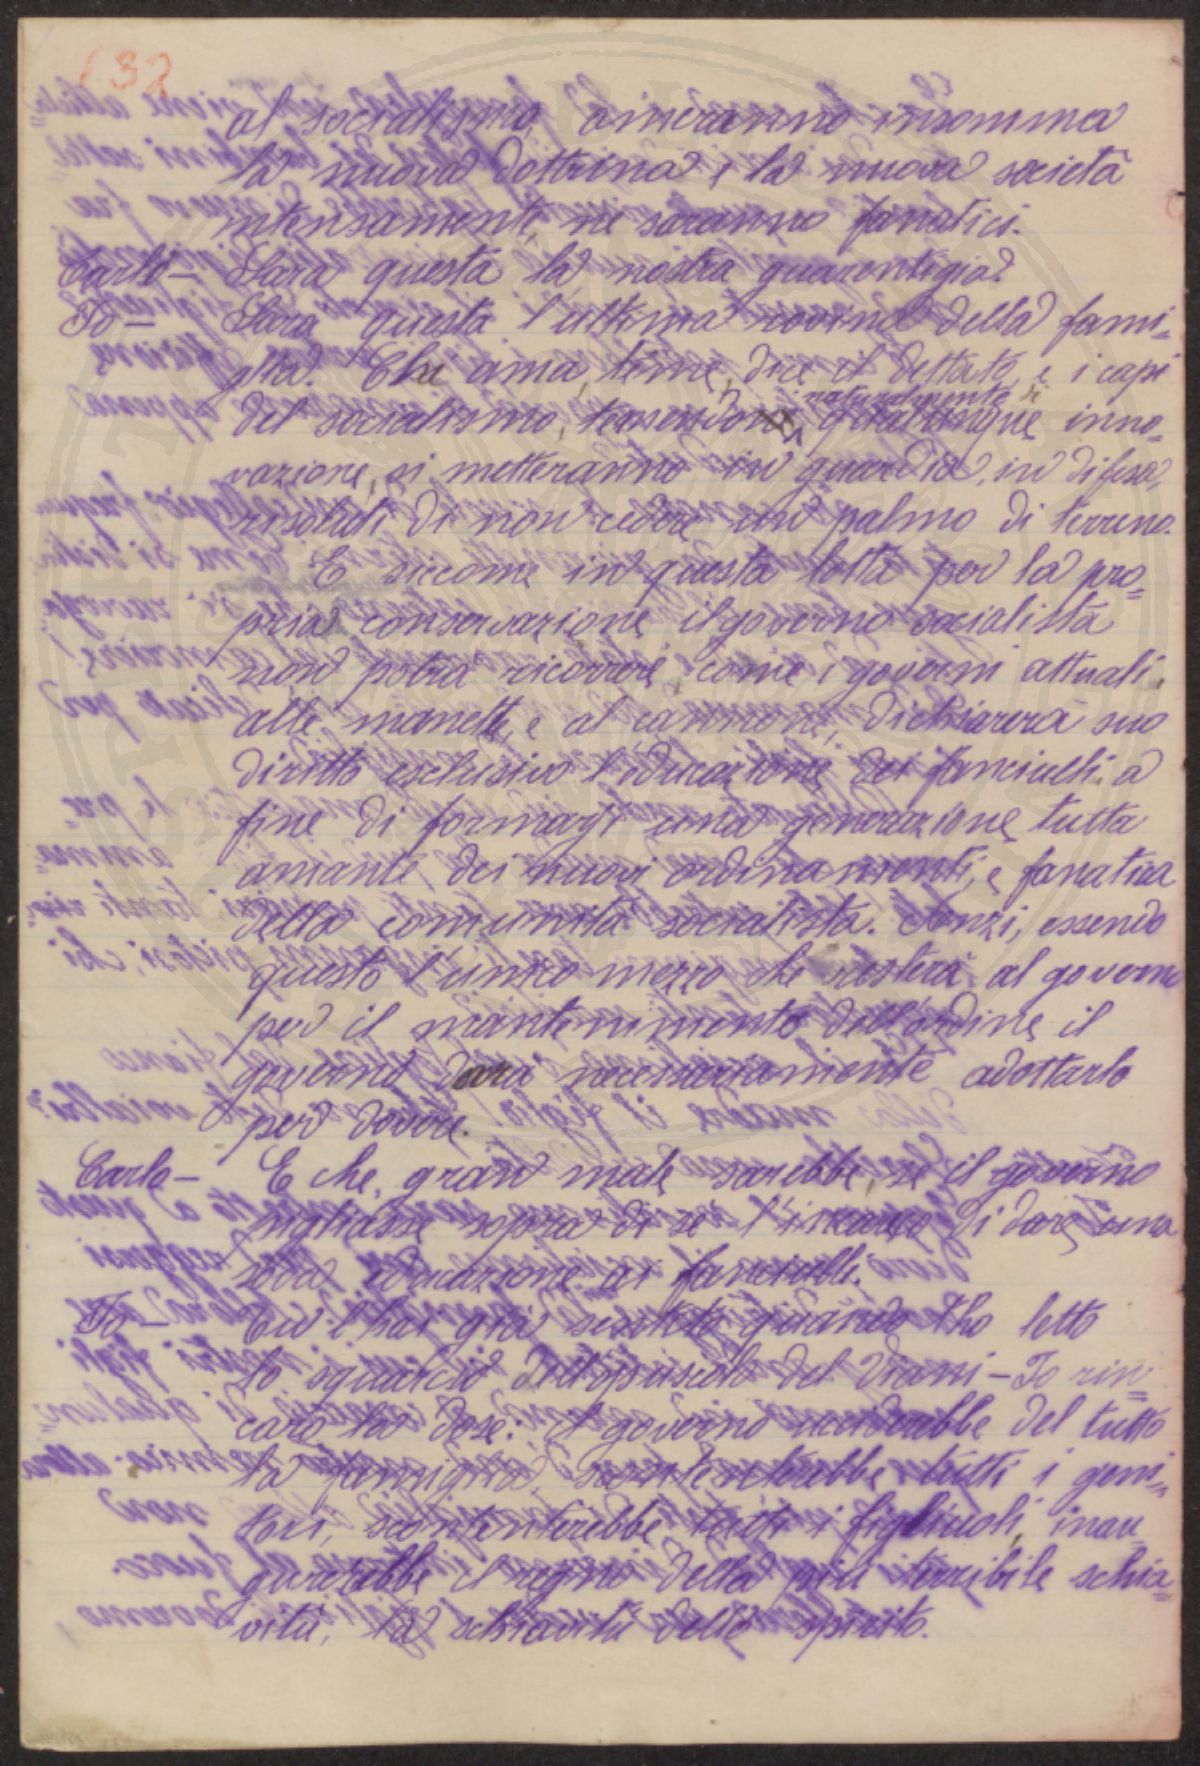 132
al socialismo, ameranno insomma
la nuova dottrina, la nuova società
intensamente, ne saranno fanatici.
Carlo — Sara questa la nostra guarentigia?
Io — Sara questa l'ultima rovina della fami=
glia. Chi ama, teme, dice il dettato, e i capi
del socialismo, naturalmente di qualunque inno=
vazione, si metteranno in guardia, in difesa,
risoluti di non cedere un palmo di terreno.
E siccome in questa lotta per la pro=
pria conservazione il governo socialista
non potrà ricorrere, come i governi attuali,
alle manette, e al cannone, dichiarerà suo
diritto esclusivo l'educazione dei fanciulli a
fine di formarsi una generazione tutta
amante dei nuovi ordinamenti, e fanatica
della comunità socialista. Anzi, essendo
questo l'unico mezzo che resterà al governo
per il mantenimento dell'ordine, il
governo dovrà necessariamente adottarlo
per dovere.
Carlo — E che gran male sarebbe, se il governo
pigliasse sopra di sè l'incarico di dare una
soda educazione ai fanciulli.
Io — Tu l'hai già sentito quando t'ho letto
lo squarcio dell'opuscolo del Viani — Io rin=
caro la dose: il governo ucciderebbe del tutto
la famiglia, scontenterebbe tutti i geni=
tori, scontenterebbe tutti i figliuoli, inau=
gurerebbe il regno della più terribile schia=
vitù, la schiavitù dello spirito.